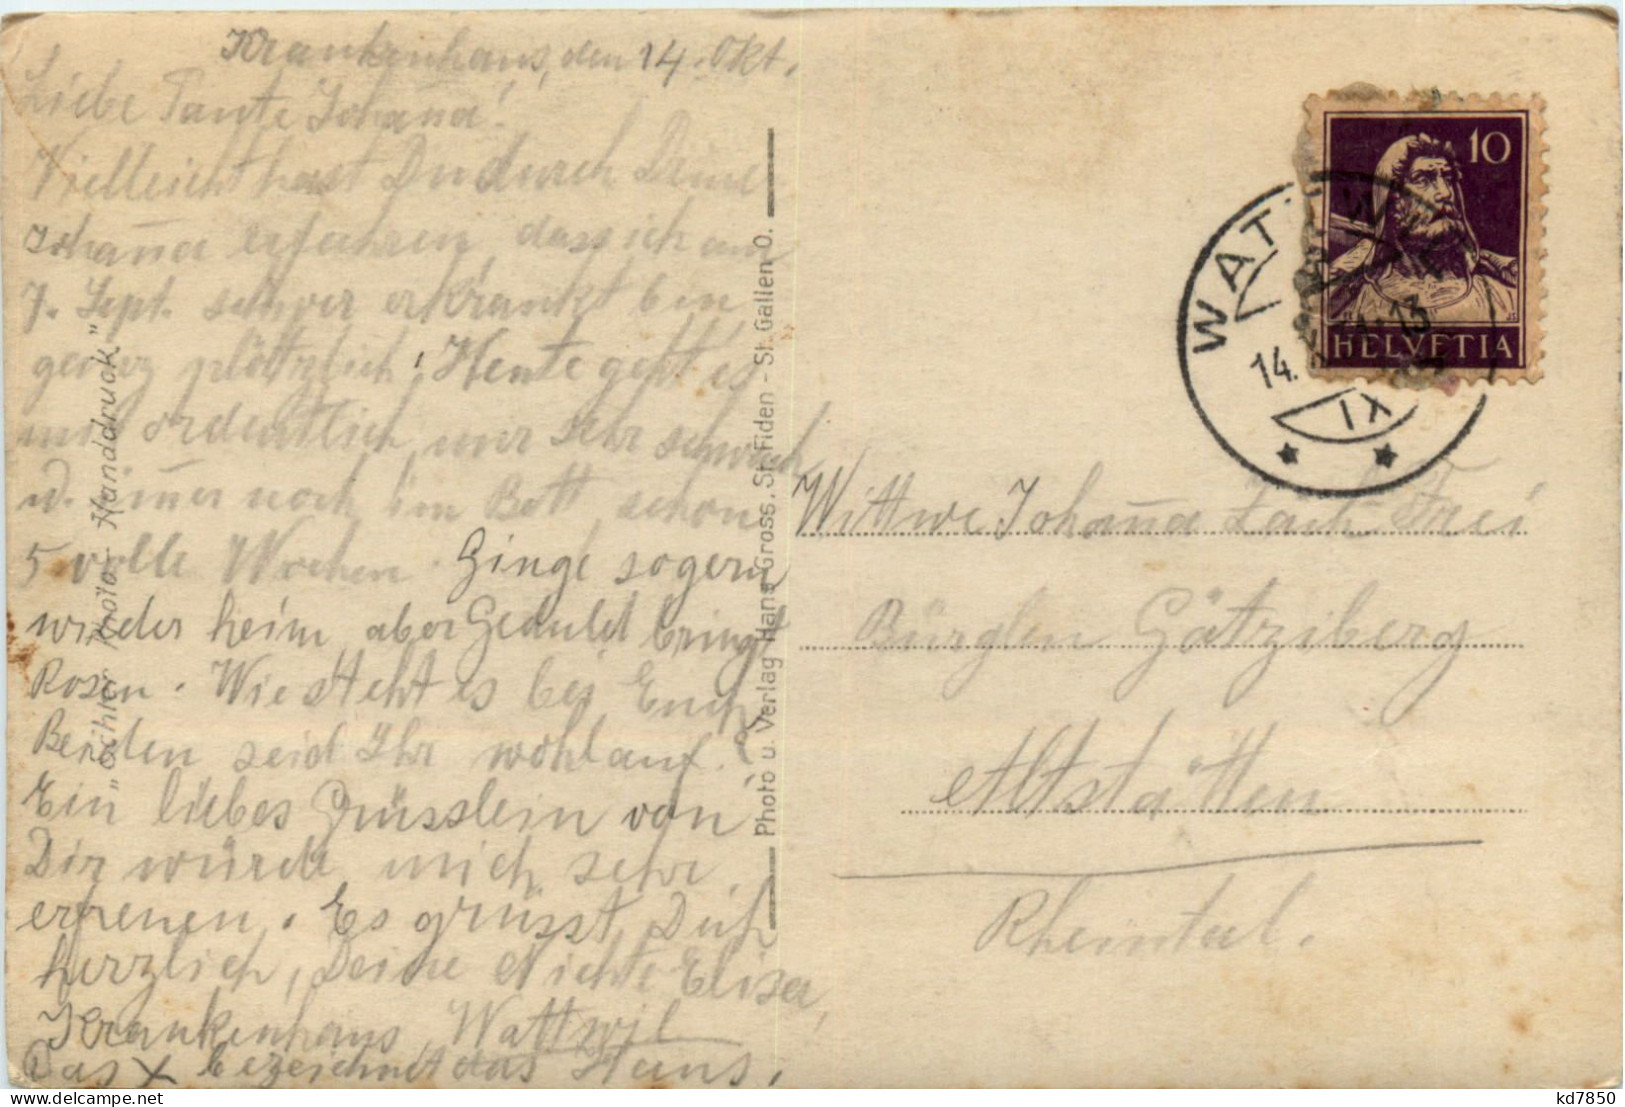 Krankenhaus, den 14. Okt.
Liebe Tante Johan̄a!
Vielleicht hast Du durch Deine
Johan̄a erfahren, dass ich am
7. Sept. schwer erkrankt bin
ganz plötzlich. Heute geht es
mir ordentlich, nur sehr schwach
u. im̄er noch im Bett, schon
5 volle Wochen. Ginge so gern
wieder heim, aber Geduld bringt
Rosen. Wie steht es bei Euch
Beiden seid Ihr wohlauf?
Ein liebes Grüsslein von
Dir würde mich sehr
erfreuen. Es grüsst Dich
herzlich, Deine Nichte Elisa,
Krankenhaus Wattwil
Das x bezeichnet das Haus.
"Echte Photo- Handdruck"
Photo u. Verlag Hans Gross, St. Fiden - St. Gallen O.
10
HELVETIA
WATTWIL
14. 13
XI
Wittwe Johan̄a Frei
Bürglen Gätziberg
Altstätten
Rheintal.
kd7850